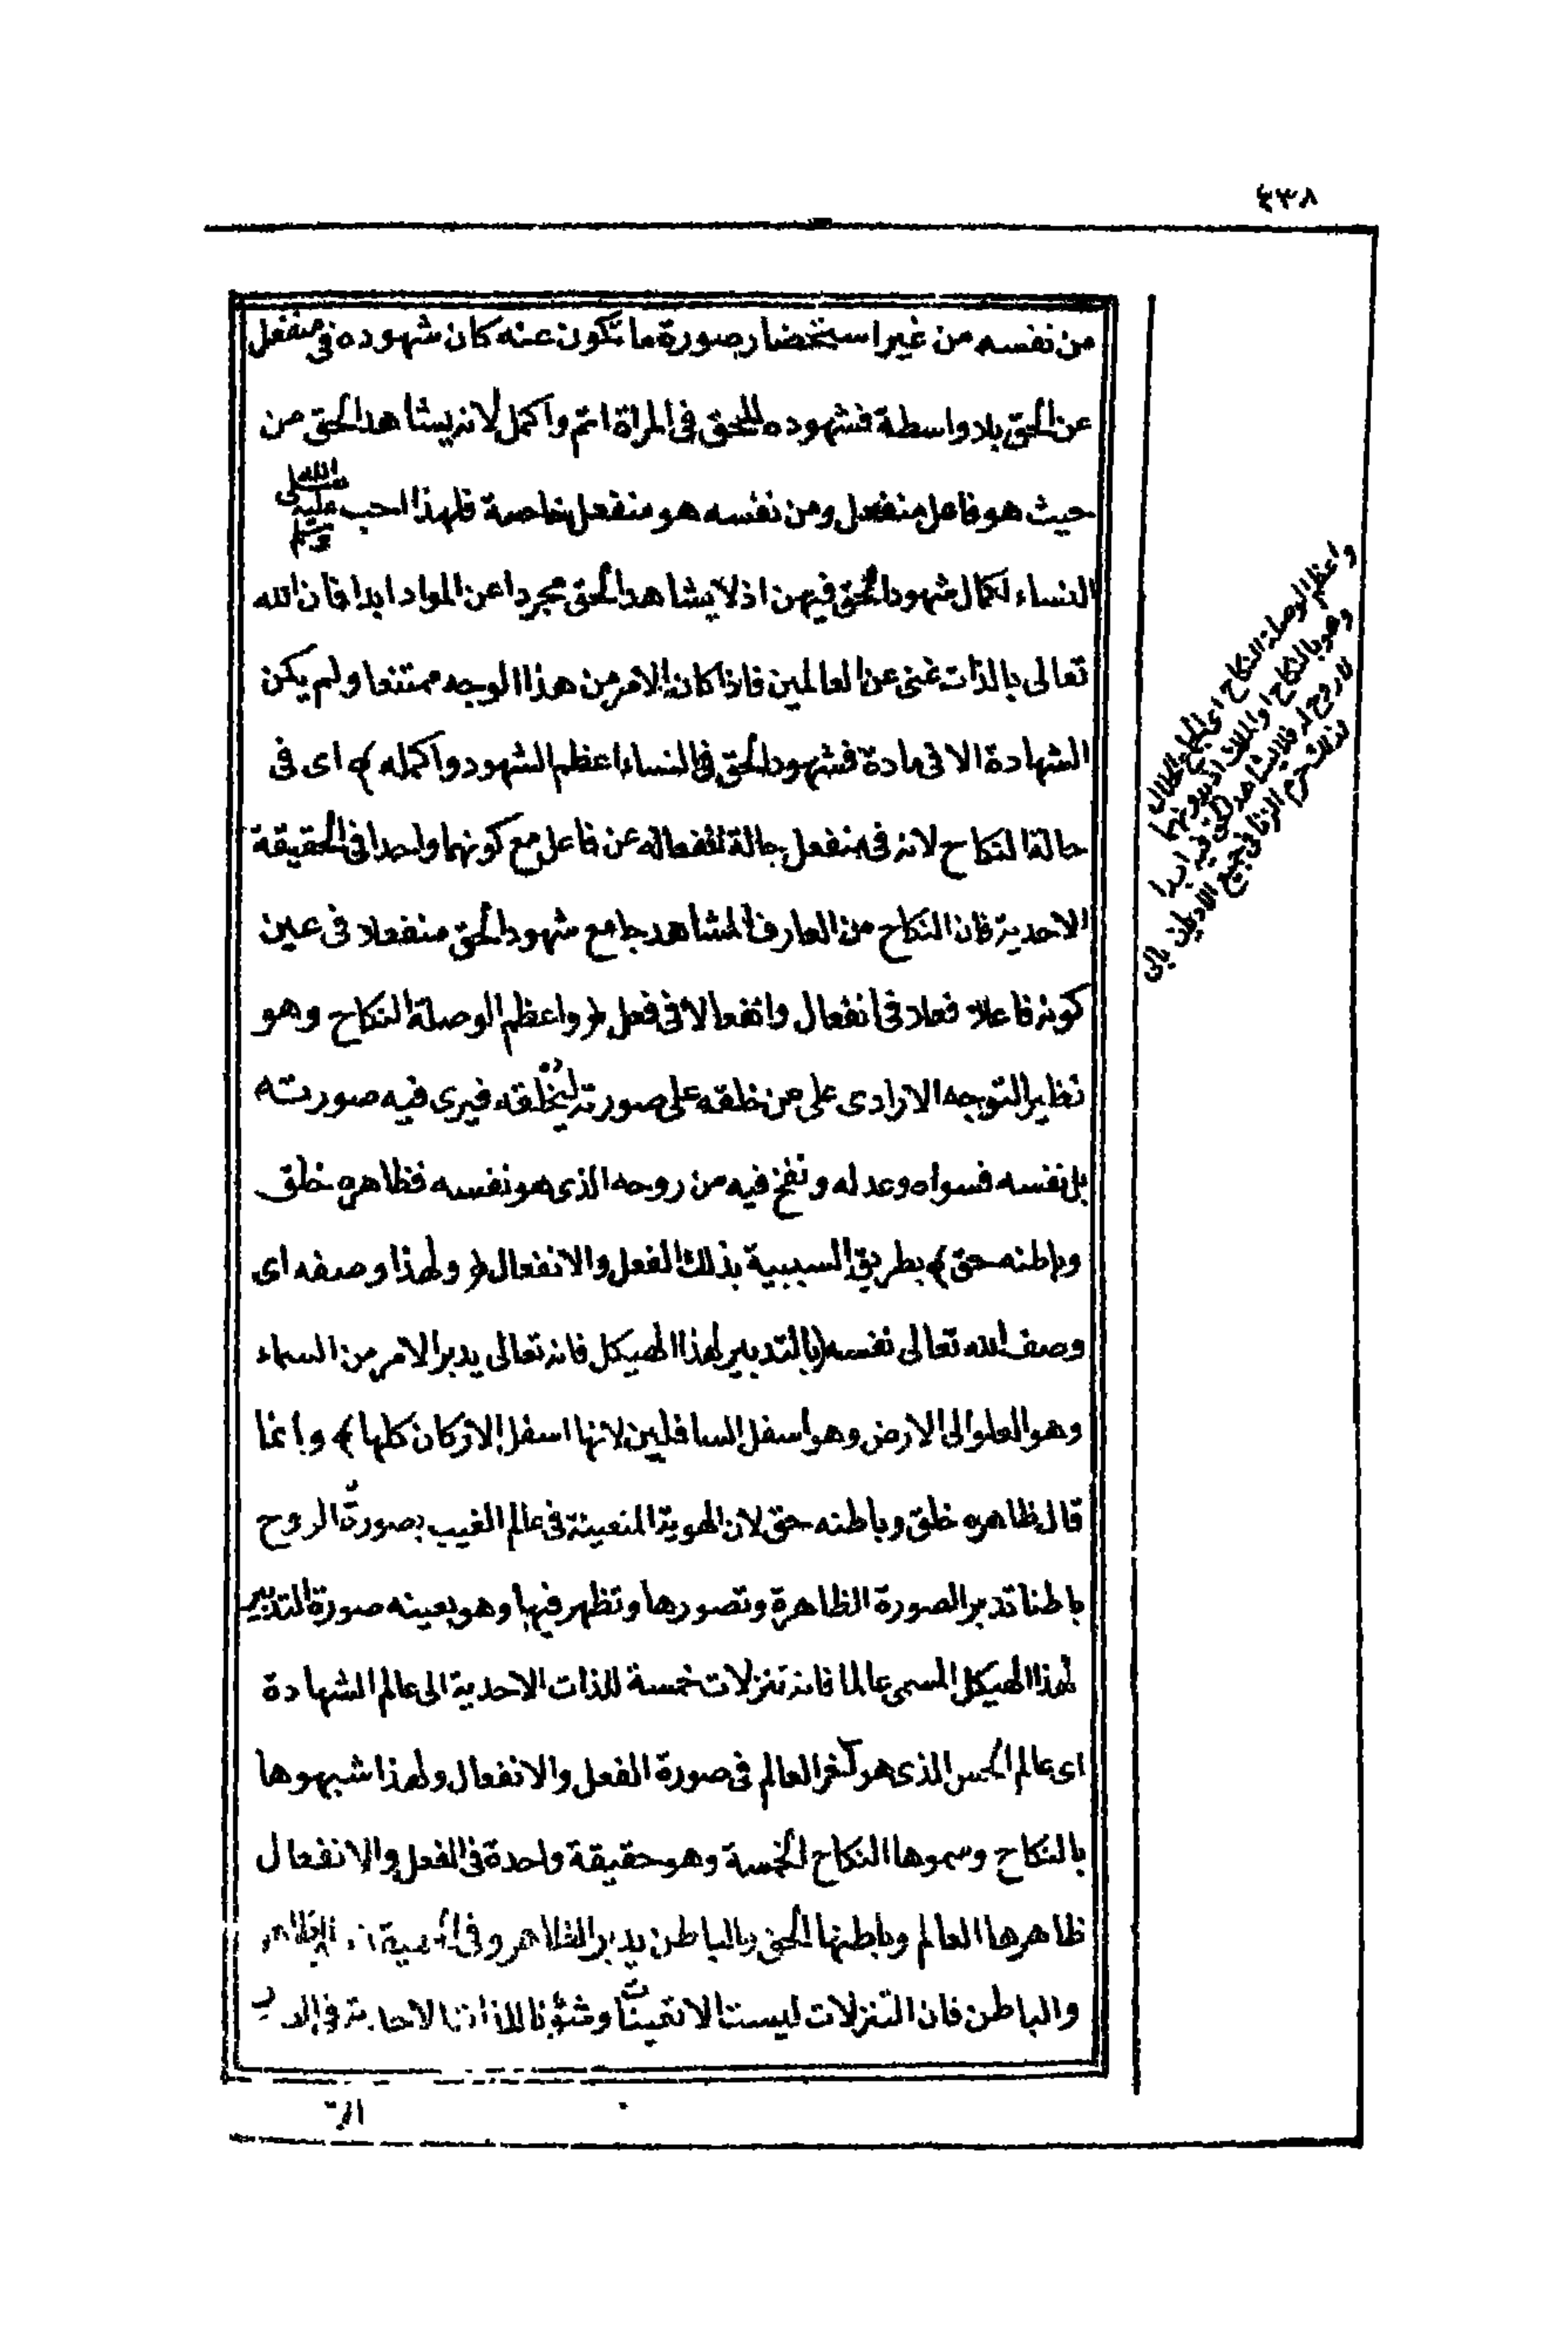 ٤٣٨
من نفسه من غير استحضار صورة ما تكون عنه كان شهوده فى منفعل
عن الحق بلا واسطة فشهوده للحق فى المرأة اتم واكمل لانه يشاهد الحق من
حيث هو فاعل منفعل ومن نفسه هو منفعل خاصة فلهذا احب صلى الله عليه وسلم
النساء لكمال شهود الحق فيهن اذ لا يشاهد الحق مجردا عن المواد ابدا فان الله
تعالى بالذات غنى عن العالمين فاذا كان الامر من هذا الوجه ممتنعا ولم يكن
الشهادة الا فى مادة فشهود الحق فى النساء اعظم الشهود واكمله ﴾ اى فى
حالة النكاح لانه فى منفعل بحالة انفعاله عن فاعل مع كونهما واحدا فى الحقيقة
الاحدية فان النكاح من العارف المشاهد جامع شهود الحق منفعلا فى عين
كونه فاعلا فعلا فى انفعال وانفعالا فى فعل ﴿ واعظم الوصلة النكاح وهو
نظير التوجه الارادى على من خلقه على صورته ليخلقه فيرى فيه صورته
بل نفسه فسواه وعدله ونفخ فيه من روحه الذى هو نفسه فظاهره خلق
وباطنه حق ﴾ بطريق السببية بذلك الفعل والانفعال ﴿ ولهذا وصفه اى
وصف الله تعالى نفسه ﴿ بالتدبير لهذا الهيكل فانه تعالى يدبر الامر من السماء
وهو العلو الى الارض وهو اسفل السافلين لانها اسفل الاركان كلها ﴾ وانما
قال ظاهره خلق وباطنه حق لان الهوية المتعينة فى عالم الغيب بصورة الروح
باطنا تدبر الصورة الظاهرة وتصورها وتظهر فيها وهو بعينه صورة التدبير
لهذا الهيكل المسمى عالما فانه تنزلات خمسة للذات الاحدية الى عالم الشهادة
اى عالم الحس الذى هو آخر العالم فى صورة الفعل والانفعال ولهذا شبهوها
بالنكاح وسموها النكاح الخمسة وهو حقيقة واحدة فى الفعل والانفعال
ظاهرها العالم وباطنها الحق والباطن يدبر الظاهر وفى الظاهر
والباطن فان التنزلات ليست الا تعينات وشؤنا للذات الاحدية فى
واعظم الوصلة النكاح اى الجماع الحلال
وهو بالنكاح او الملك اذ بدونهما
لا روح له فلا يشاهد الحق فيه ابدا
لذلك حرم الزنا فى جميع الاديان بالى